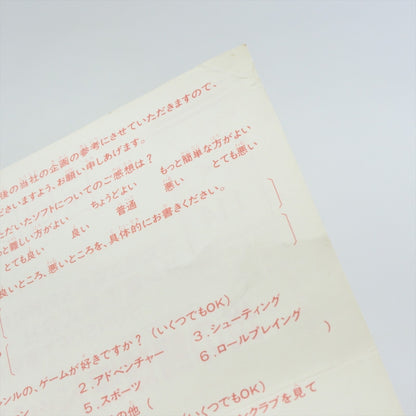 後の当社の企画の参考にさせていただきますので、
ださいますよう、お願い申しあげます。
ただいたソフトについてのご感想は?
っと難しい方がよい ちょうどよい もっと簡単な方がよい
とても良い 良い 普通 悪い とても悪い
良いところ、悪いところを、具体的にお書きください。
ャンルの、ゲームが好きですか?(いくつでもOK)
2.アドベンチャー 3.シューティング
5.スポーツ 6.ロールプレイング
の他( )
(いくつでもOK)
ンクラブを見て